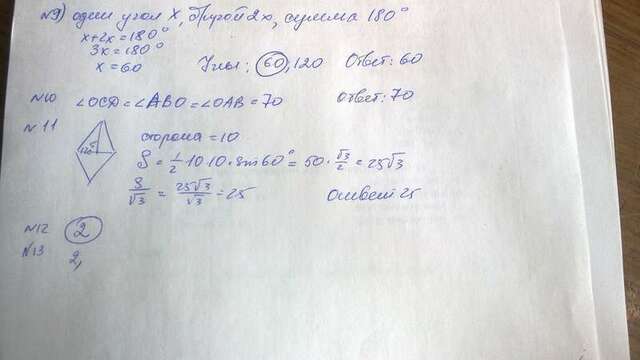 №9) один угол x, другой 2x, сумма 180°
x+2x=180°
3x=180°
x=60 Углы: 60, 120 Ответ: 60
№10 ∠OCD=∠ABO=∠OAB=70 ответ: 70
№11 сторона=10
S=1/2·10·10·sin60°=50·√3/2=25√3
S/√3=25√3/√3=25 Ответ 25
№12 2
№13 2,